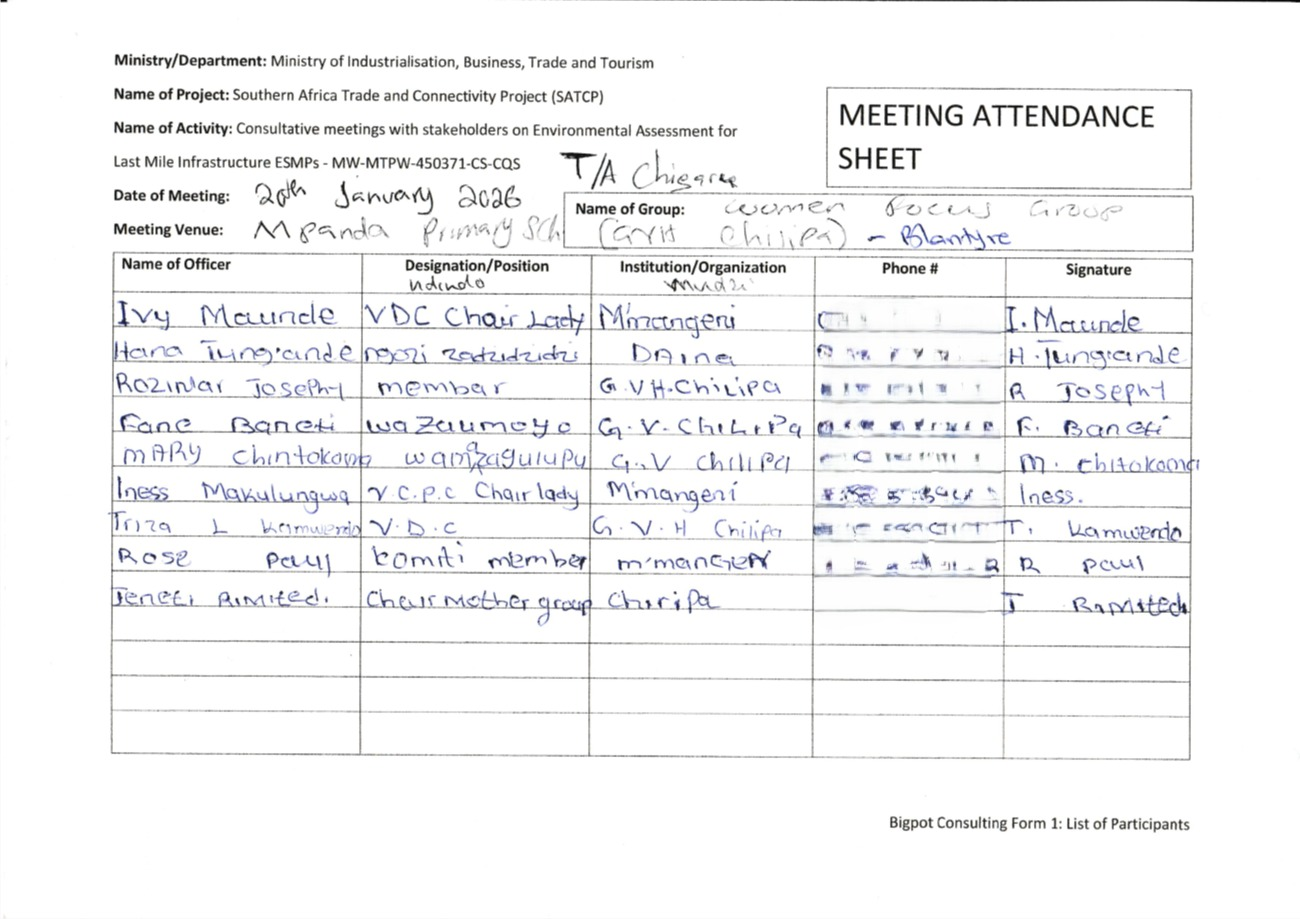 Ministry/Department: Ministry of Industrialisation, Business, Trade and Tourism
Name of Project: Southern Africa Trade and Connectivity Project (SATCP)
MEETING ATTENDANCE
SHEET
Name of Activity: Consultative meetings with stakeholders on Environmental Assessment for
Last Mile Infrastructure ESMPs - MW-MTPW-450371-CS-CQS
T/A
Date of Meeting: 20th January 2026
Name of Group: Women Focus Group
Meeting Venue: Mpanda Primary Sch
(GVH Chilipa) - Blantyre
Name of Officer Designation/Position Institution/Organization Phone # Signature
Ndindo Mudzi
Ivy Maunde VDC Chair Lady M'mangeni I. Maunde
Hana Tungrande ngozi zadzidzidzi DAina H. Tungrande
Rozinlar Josephy membar G.VH.Chilipa R Josephy
Fane Baneti wa Zaumoyo G.V.Chilipa F. Baneti
MARY Chintokoma G.V Chilipa M. Chitokoma
Iness Makulungwa V.C.P.C Chair lady M'mangeni Iness.
Triza L Kamwendo V.D.C G.V.H Chilipa T. Kamwendo
Rose Paul komiti member M'mangeni R Paul
Jeneti Chair Mother group Chiripa J
Bigpot Consulting Form 1: List of Participants